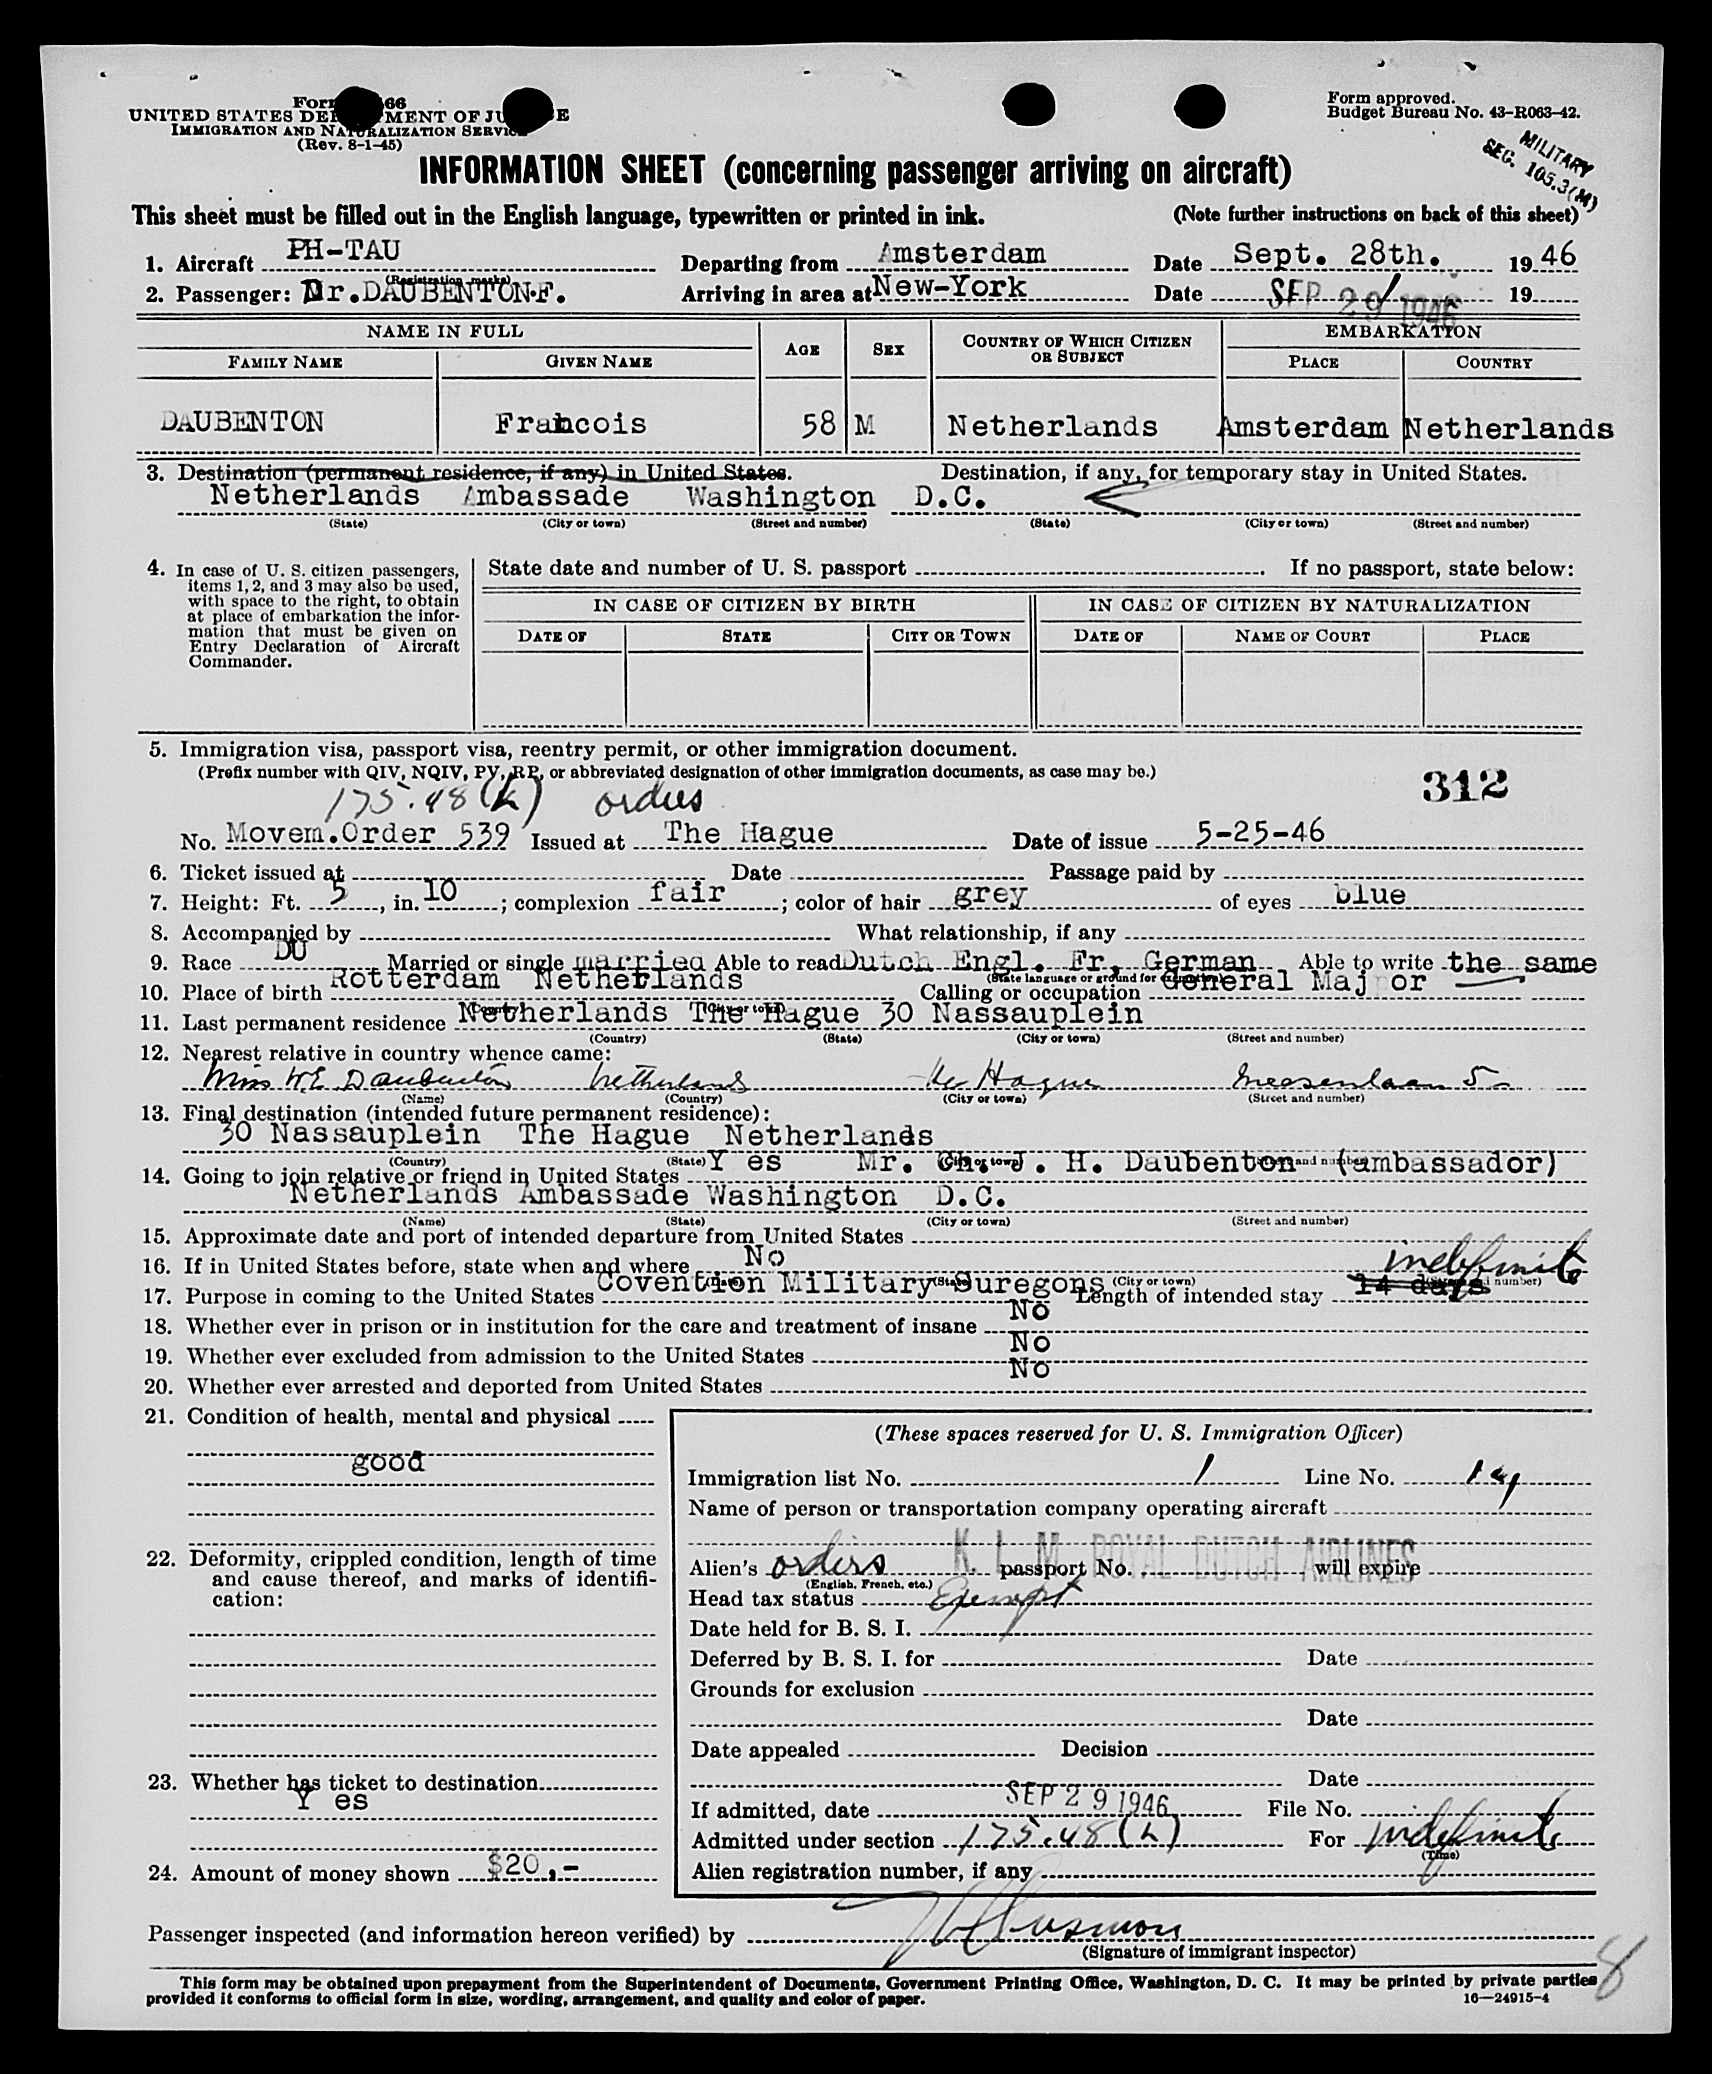 Form 66
UNITED STATES DEPARTMENT OF JUSTICE
IMMIGRATION AND NATURALIZATION SERVICE
(Rev. 8-1-45)
Form approved.
Budget Bureau No. 43-R063-42.
MILITARY
SEC. 105.3(M)
INFORMATION SHEET (concerning passenger arriving on aircraft)
This sheet must be filled out in the English language, typewritten or printed in ink. (Note further instructions on back of this sheet)
1. Aircraft PH-TAU Departing from Amsterdam Date Sept. 28th. 1946
(Registration marks)
2. Passenger: Dr.DAUBENTON.F. Arriving in area at New-York Date SEP 29 1946 19
NAME IN FULL AGE SEX COUNTRY OF WHICH CITIZEN OR SUBJECT EMBARKATION
FAMILY NAME GIVEN NAME PLACE COUNTRY
DAUBENTON Francois 58 M Netherlands Amsterdam Netherlands
3. Destination (permanent residence, if any) in United States. Destination, if any, for temporary stay in United States.
Netherlands Ambassade Washington D.C.
(State) (City or town) (Street and number) (State) (City or town) (Street and number)
4. In case of U. S. citizen passengers, items 1, 2, and 3 may also be used, with space to the right, to obtain at place of embarkation the information that must be given on Entry Declaration of Aircraft Commander.
State date and number of U. S. passport . If no passport, state below:
IN CASE OF CITIZEN BY BIRTH IN CASE OF CITIZEN BY NATURALIZATION
DATE OF STATE CITY OR TOWN DATE OF NAME OF COURT PLACE
5. Immigration visa, passport visa, reentry permit, or other immigration document.
(Prefix number with QIV, NQIV, PV, RP, or abbreviated designation of other immigration documents, as case may be.)
312
175.48(h) orders
No. Movem.Order 539 Issued at The Hague Date of issue 5-25-46
6. Ticket issued at Date Passage paid by
7. Height: Ft. 5, in. 10; complexion fair; color of hair grey of eyes blue
8. Accompanied by What relationship, if any
9. Race DU Married or single married Able to read Dutch Engl. Fr. German Able to write the same
(State language or ground for exemption)
10. Place of birth Rotterdam Netherlands Calling or occupation General Maj or
(Country) (City or town)
11. Last permanent residence Netherlands The Hague 30 Nassauplein
(Country) (State) (City or town) (Street and number)
12. Nearest relative in country whence came:
Daubenton Netherlands Hague 5
(Name) (Country) (City or town) (Street and number)
13. Final destination (intended future permanent residence):
30 Nassauplein The Hague Netherlands
(Country) (State) (City or town) (Street and number)
14. Going to join relative or friend in United States Y es Mr. Ch. J. H. Daubenton (ambassador)
Netherlands Ambassade Washington D.C.
(Name) (State) (City or town) (Street and number)
15. Approximate date and port of intended departure from United States
16. If in United States before, state when and where No
(Date) (State) (City or town) (Street and number)
17. Purpose in coming to the United States Covention Military Suregons Length of intended stay 14 days indefinite
18. Whether ever in prison or in institution for the care and treatment of insane No
19. Whether ever excluded from admission to the United States No
20. Whether ever arrested and deported from United States No
21. Condition of health, mental and physical
good
22. Deformity, crippled condition, length of time and cause thereof, and marks of identification:
23. Whether has ticket to destination
Y es
24. Amount of money shown $20,-
(These spaces reserved for U. S. Immigration Officer)
Immigration list No. 1 Line No.
Name of person or transportation company operating aircraft
K L M ROYAL DUTCH AIRLINES
Alien's orders passport No. will expire
(English, French, etc.)
Head tax status Exempt
Date held for B. S. I.
Deferred by B. S. I. for Date
Grounds for exclusion
Date
Date appealed Decision
Date
If admitted, date SEP 29 1946 File No.
Admitted under section 175.48(h) For indefinite
(Time)
Alien registration number, if any
Passenger inspected (and information hereon verified) by
(Signature of immigrant inspector)
This form may be obtained upon prepayment from the Superintendent of Documents, Government Printing Office, Washington, D. C. It may be printed by private parties
provided it conforms to official form in size, wording, arrangement, and quality and color of paper.
16—24915-4
8